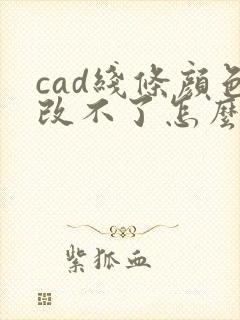 cad綫條顔色
改不了怎麽
紫狐血